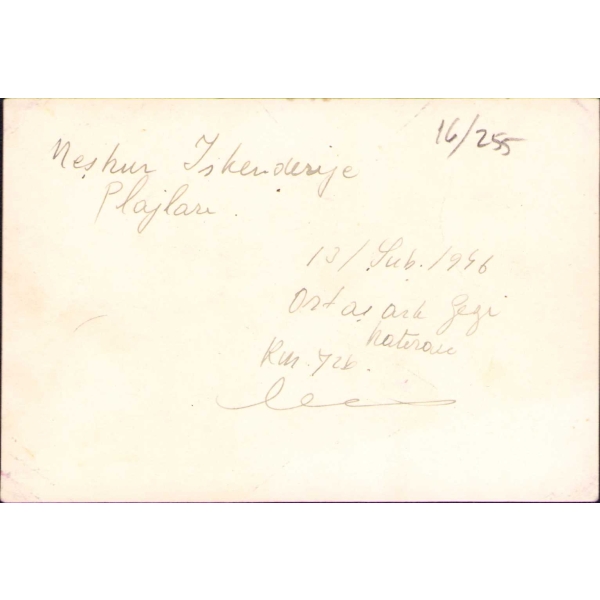 16/255
Meşhur İskenderiye
Plajları.
13/Şub.1946
Ortaşark Gezi
Hatırası
Kur. Yzb.